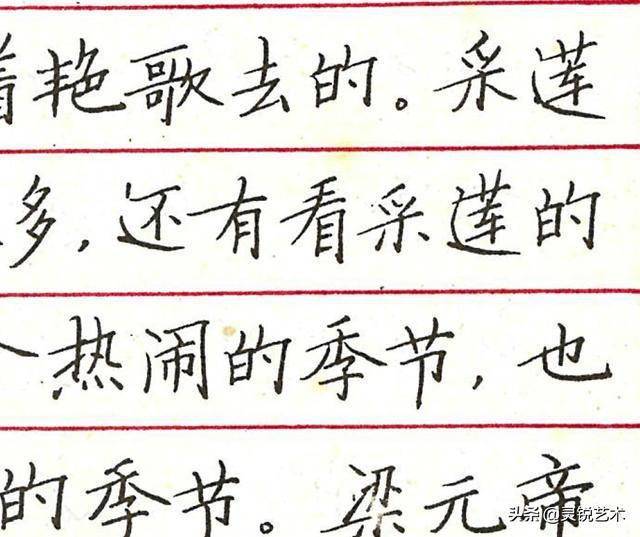 着艳歌去的。采莲
多,还有看采莲的
个热闹的季节,也
的季节。梁元帝
头条@灵锐艺术